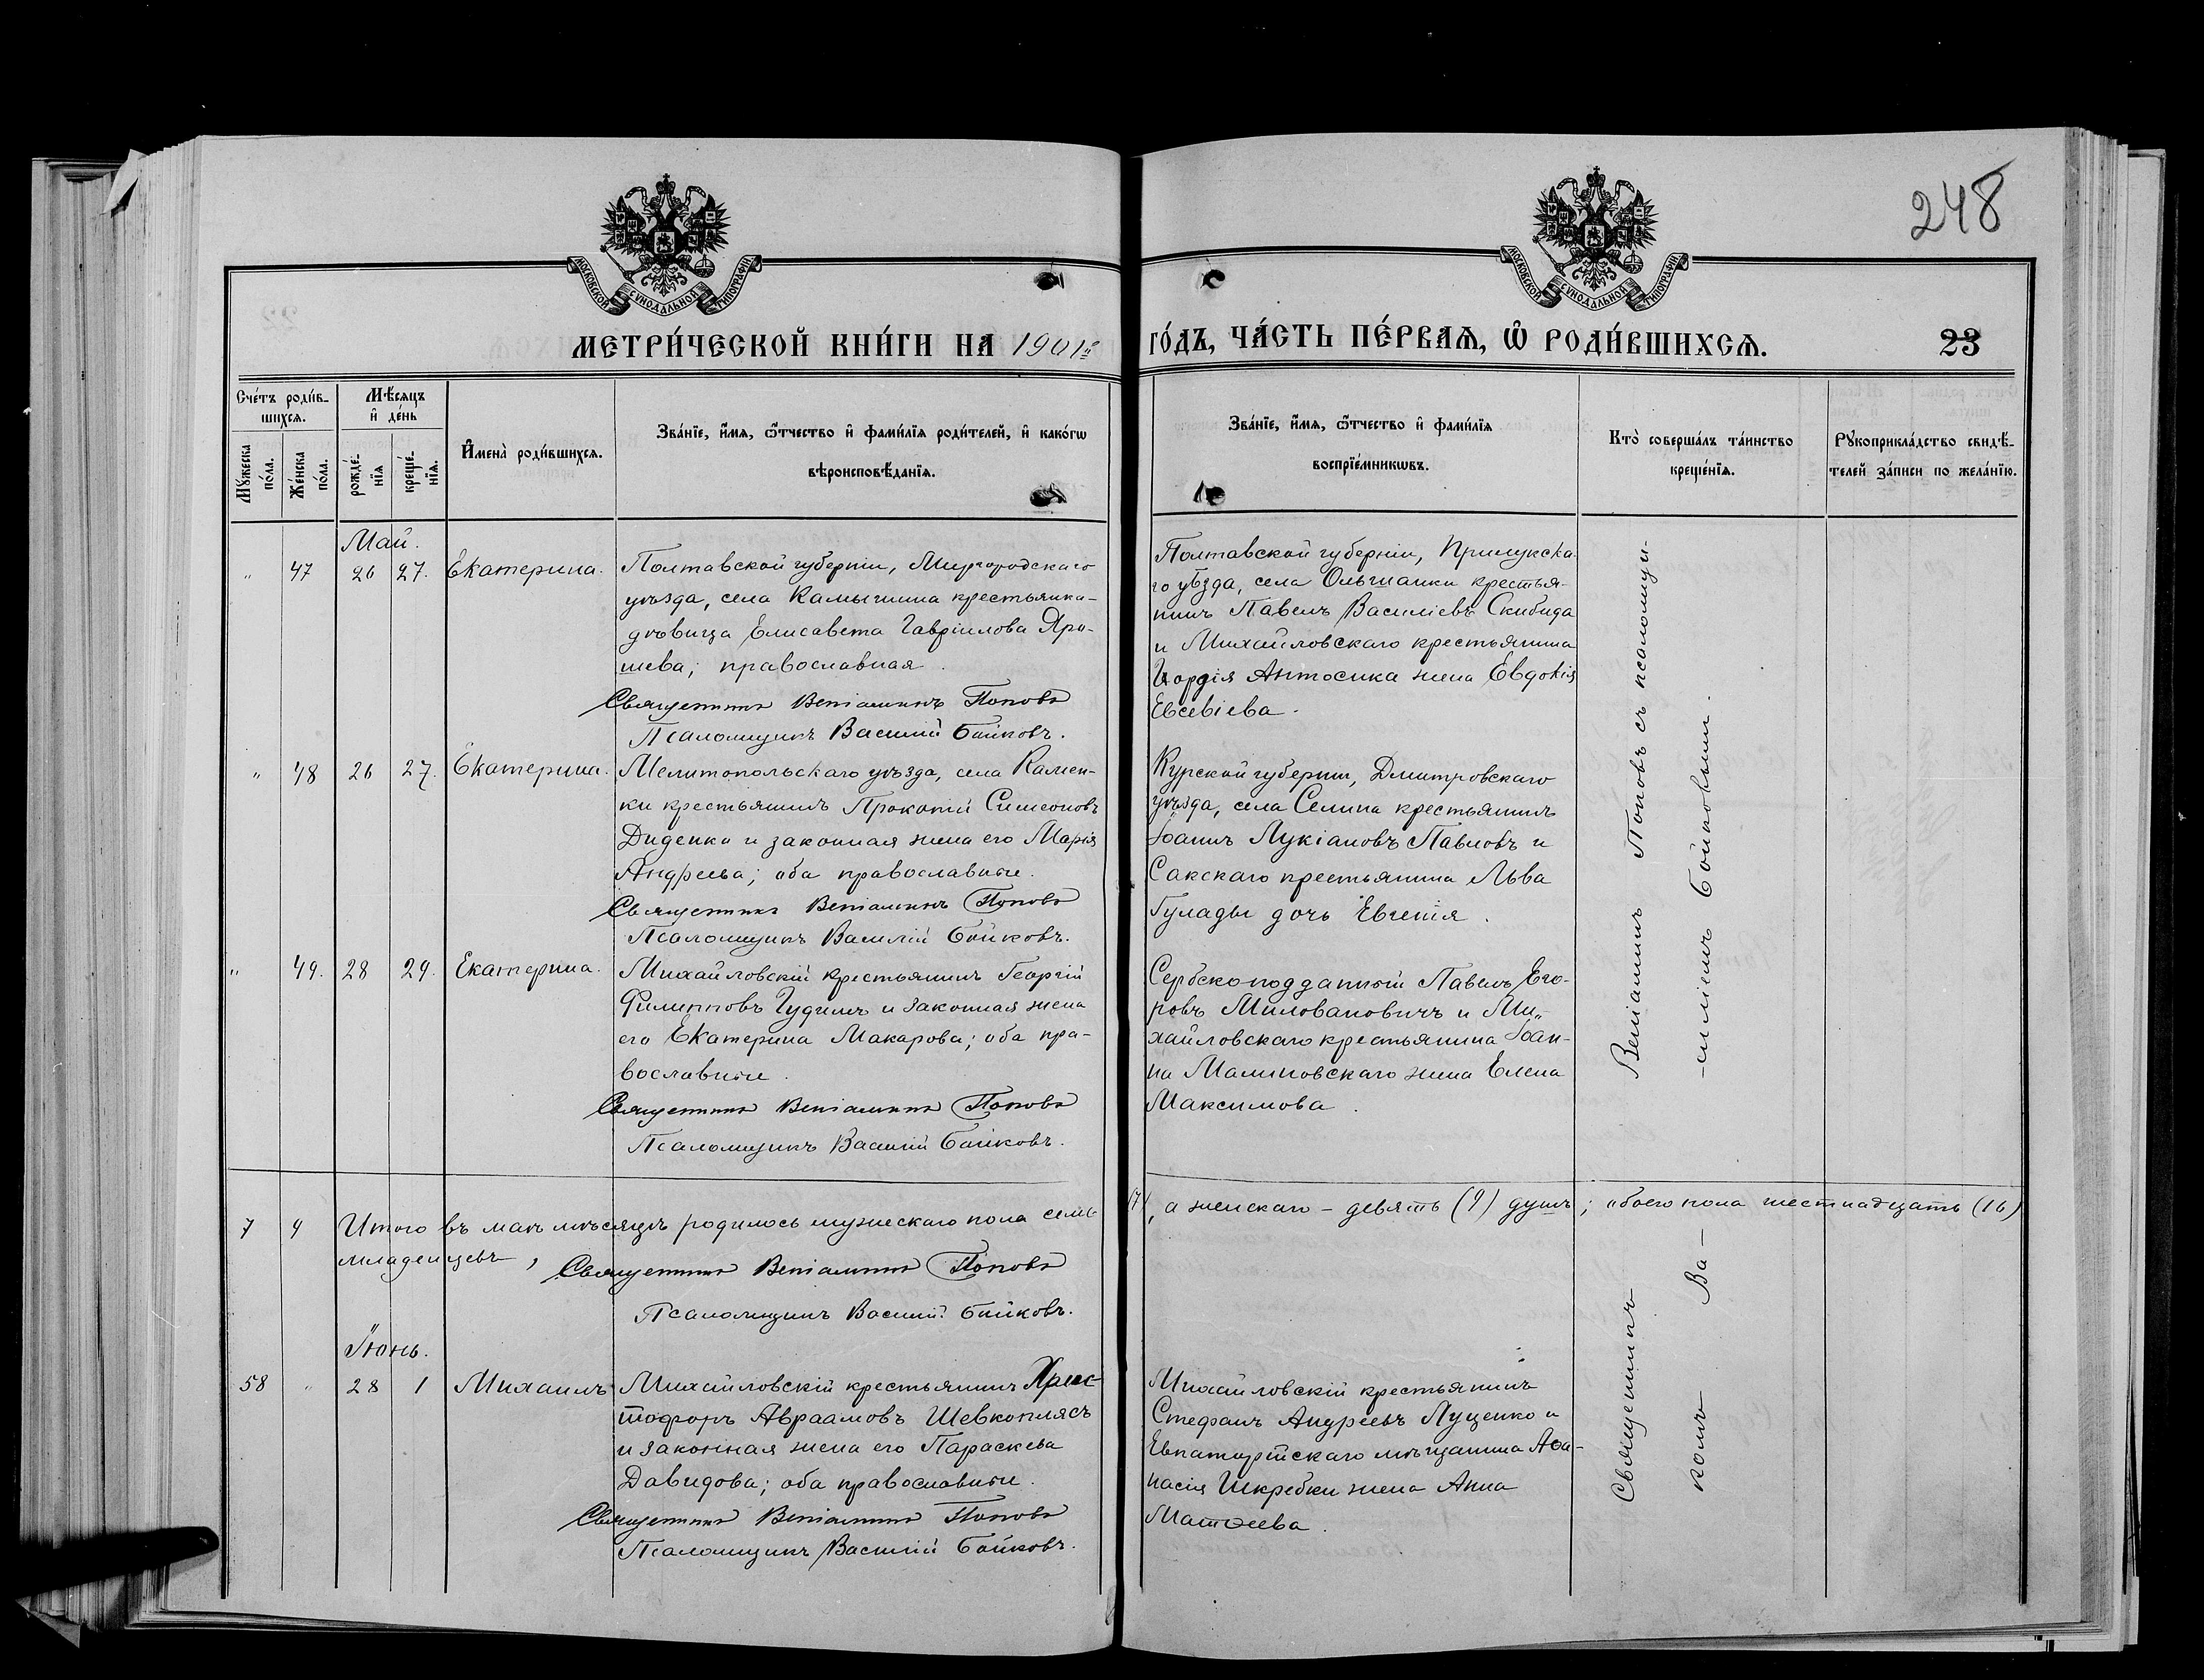 248
МОСКОВСКОЙ СѴНОДАЛЬНОЙ ТИПОГРАФІИ
МОСКОВСКОЙ СѴНОДАЛЬНОЙ ТИПОГРАФІИ
МЕТРИ́ЧЕСКОЙ КНИ́ГИ НА 1901й ГО́ДЪ, ЧА́СТЬ ПЕ́РВАѦ, Ѡ҆ РОДИ́ВШИХСѦ.
23
Сче́тъ роди́в-
шихсѧ.
Мꙋ́жеска
по́ла.
Же́нска
по́ла.
Мѣ́сѧцъ
и҆ де́нь
рожде́-
нїѧ
креще́-
нїѧ.
И҆мена̀ роди́вшихсѧ.
Зва́нїе, и҆́мѧ, ѻ҆́тчество и҆ фами́лїѧ роди́телей, и҆ како́гѡ
вѣроисповѣ́данїѧ.
Зва́нїе, и҆́мѧ, ѻ҆́тчество и҆ фами́лїѧ
воспрїе́мникѡвъ.
Кто̀ соверша́лъ та́инство
креще́нїѧ.
Рꙋкоприкла́дство свидѣ́-
телей за́писи по жела́нїю.
Май.
" 47 26 27. Екатерина.
Полтавской губерніи, Миргородскаго
уѣзда, села Камышина крестьянка-
дѣвица Елисавета Гавріилова Яры-
шева; православная.
Священникъ Веніаминъ Поповъ
Псаломщикъ Василій Бойковъ.
Полтавской губерніи, Прилукска-
го уѣзда, села Ольшанки крестья-
нинъ Павелъ Василіевъ Скибида
и Михайловскаго крестьянина
Гордія Антосика жена Евдокія
Евсевіева.
" 48 26 27. Екатерина.
Мелитопольскаго уѣзда, села Камен-
ки крестьянинъ Прокопій Симеоновъ
Диденко и законная жена его Марія
Андреева; оба православные.
Священникъ Веніаминъ Поповъ
Псаломщикъ Василій Бойковъ.
Курской губерніи, Дмитровскаго
уѣзда, села Селина крестьянинъ
Іоаннъ Лукіановъ Павловъ и
Сакскаго крестьянина Льва
Гулады дочь Евгенія.
" 49. 28 29. Екатерина.
Михайловскій крестьянинъ Георгій
Филипповъ Чудимъ и законная жена
его Екатерина Макарова; оба пра-
вославные.
Священникъ Веніаминъ Поповъ
Псаломщикъ Василій Бойковъ.
Сербскоподданный Павелъ Его-
ровъ Миловановичъ и Ми-
хайловскаго крестьянина Іоан-
на Малиновскаго жена Елена
Максимова.
7 9 Итого въ маѣ мѣсяцѣ родилось мужескаго пола семь (7), а женскаго - девять (9) душъ; обоего пола шестнадцать (16)
младенцевъ,
Священникъ Веніаминъ Поповъ
Псаломщикъ Василій Бойковъ.
Іюнь.
58 " 28 1 Михаилъ
Михайловскій крестьянинъ Хрис-
тофоръ Авраамовъ Шевкоплясъ
и законная жена его Параскева
Давидова; оба православные.
Священникъ Веніаминъ Поповъ
Псаломщикъ Василій Бойковъ.
Михайловскій крестьянинъ
Стефанъ Андреевъ Луценко и
Евпаторійскаго мѣщанина Аѳа-
насія Шкребки жена Анна
Матѳеева.
Священникъ Веніаминъ Поповъ съ псаломщи-
комъ Ва-силіемъ Бойковымъ.